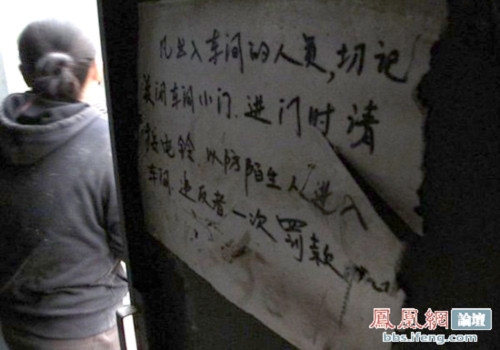 凡出入车间的人员,切记
关闭车间小门.进门时请
按电铃 以防陌生人进入
车间.违反者一次罚款
鳳凰網 論壇
bbs.ifeng.com